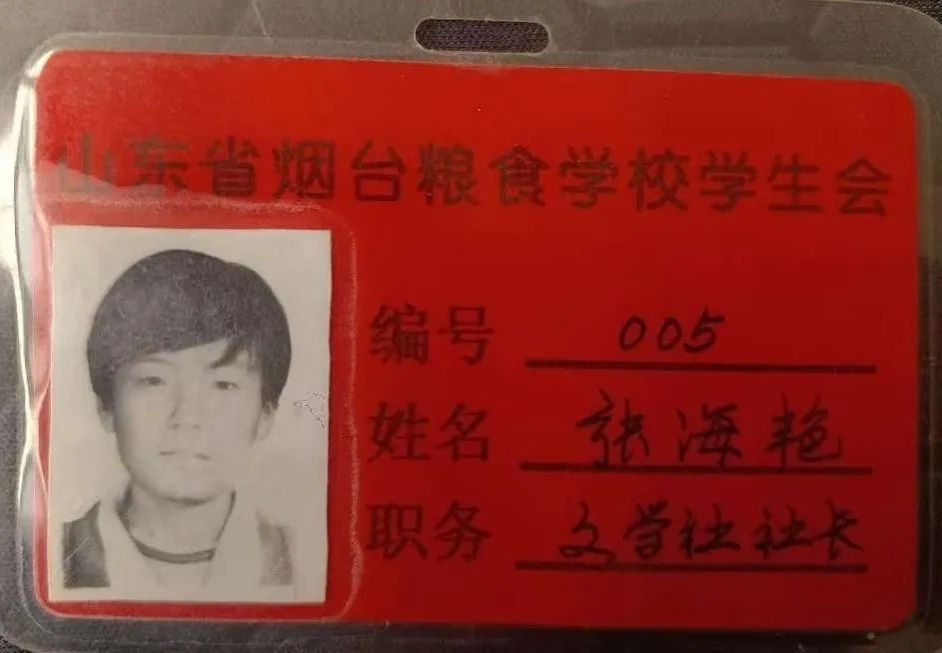 山东省烟台粮食学校学生会
编号 005
姓名 张海艳
职务 文学社社长